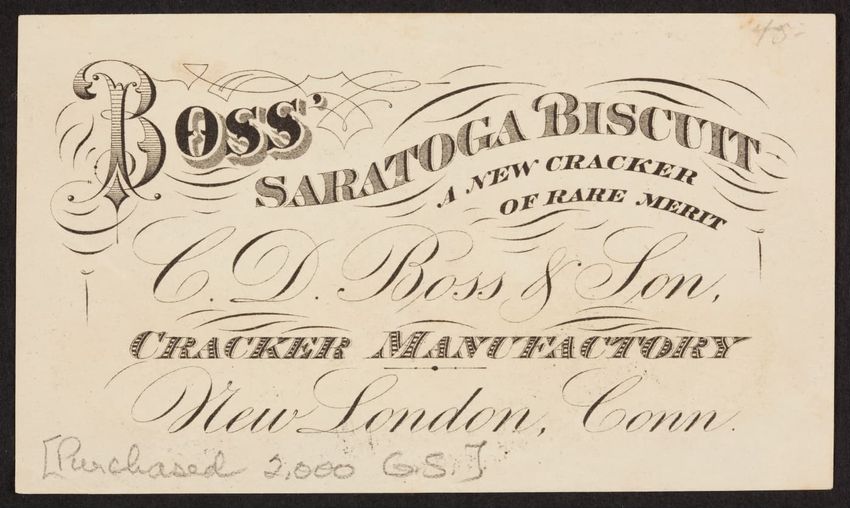 45-
Boss'
Saratoga Biscuit
A New Cracker
of Rare Merit
C. D. Boss & Son,
Cracker Manufactory
New London, Conn.
[Purchased 2,000 G.S.]